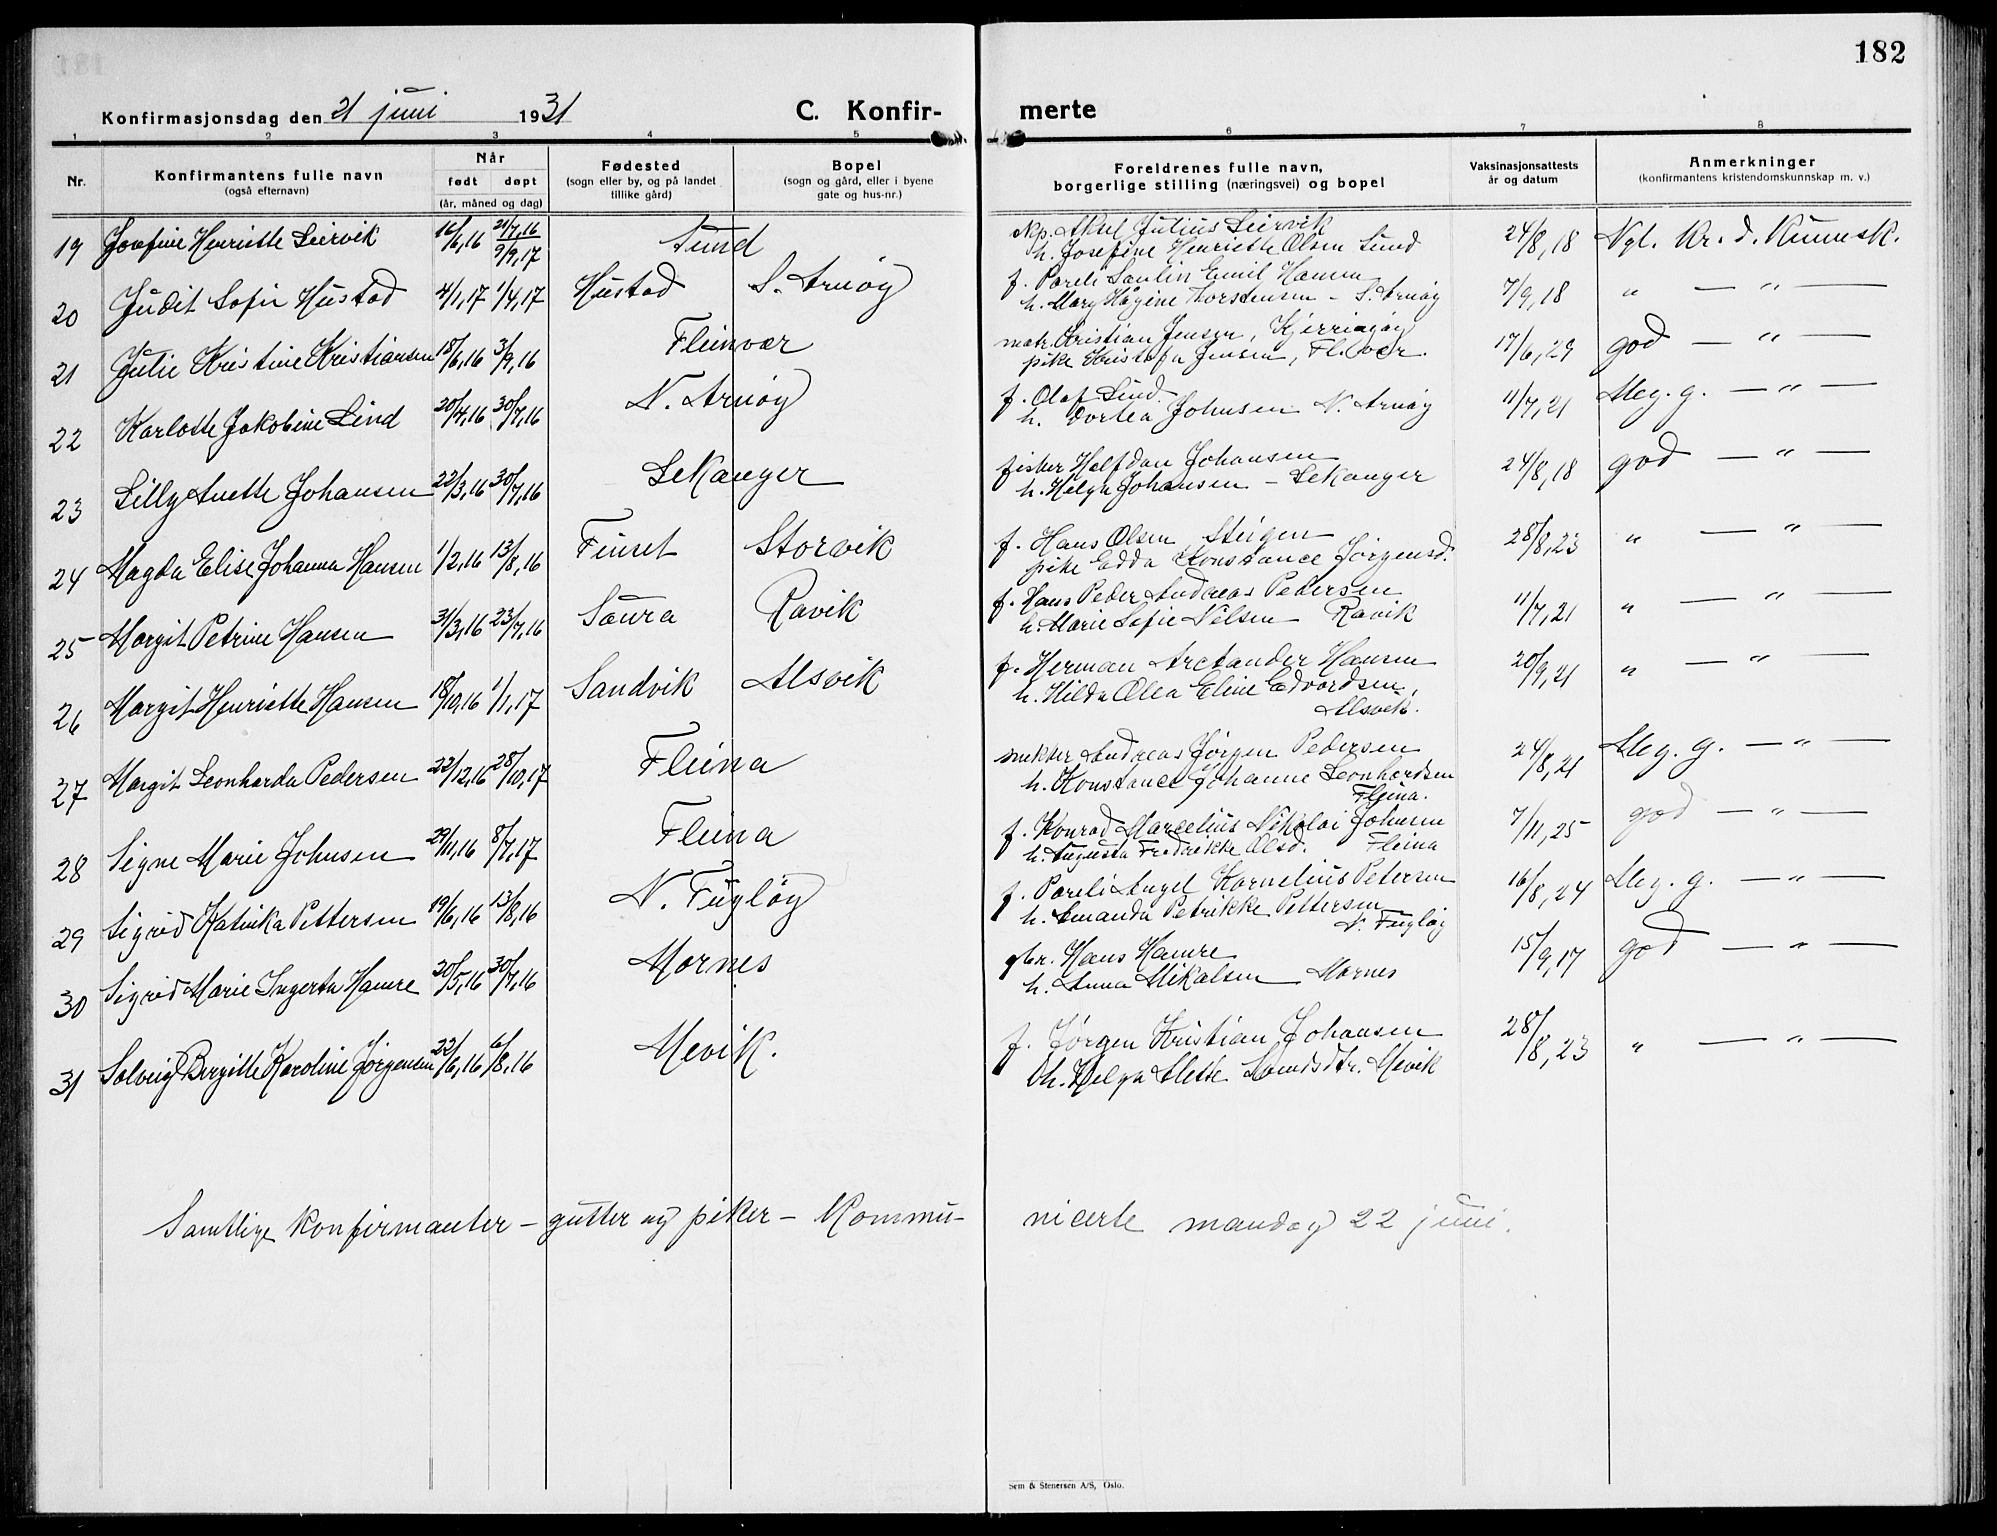 182
Konfirmasjonsdag den 21 juni 1931 C. Konfir- merte
1 2 3 4 5 6 7 8
Nr. Konfirmantens fulle navn (også efternavn) Når født døpt (år, måned og dag) Fødested (sogn eller by, og på landet tillike gård) Bopel (sogn og gård, eller i byene gate og hus-nr.) Foreldrenes fulle navn, borgerlige stilling (næringsvei) og bopel Vaksinasjonsattests år og datum Anmerkninger (konfirmantens kristendomskunnskap m. v.)
19 Josefine Henriette Leirvik 16/6,16 21/7,16 9/9,17 Sund Aksel Julius Leirvik 24/8,18 Ngl. Kr. d. Kunnsk.
h. Josefine Henriette Olsen Sund
20 Judit Sofie Hustad 4/1,17 1/4,17 Hustad S. Arnøy f. Pareli Saulin Emil Hansen 7/9,18 " — " —
h. Mary Hågine Torstensen - S. Arnøy
21 Julie Kristine Kristiansen 18/6,16 3/9,16 Fleinvær matr. Kristian Jensen, Kjerringøy 17/6,29 god — " —
pike Kristofa Jensen, Fl.vær.
22 Karlotte Jakobine Lind 20/4,16 30/7,16 N. Arnøy f. Olaf Lind 11/7,21 Meg. g. — " —
h. Dortea Johnsen N. Arnøy
23 Lilly Anette Johansen 22/3,16 30/7,16 Lekanger fisker Halfdan Johansen 24/8,18 god — " —
h. Helga Johansen - Lekanger
24 Magda Elise Johanna Hansen 1/2,16 13/8,16 Finset Storvik f. Hans Olsen Steigen 28/8,23 " — " —
pike Edda Konstance Jørgensd.
25 Margit Petrine Hansen 31/3,16 23/7,16 Saura Ravik f. Hans Peder Andreas Pedersen 11/7,21 " — " —
h. Marie Sofie Nilsen Ravik
26 Margit Henriette Hansen 18/10,16 1/1,17 Sandvik Alsvik f. Herman Arctander Hansen 20/9,21 " — " —
h. Hilda Olea Eline Edvardsen,
Alsvik.
27 Margit Leonharda Pedersen 22/12,16 28/10,17 Fleina snekker Andreas Jørgen Pedersen 24/8,21 Meg. g. — " —
h. Konstance Johanne Leonhardsen
Fleina.
28 Signe Marie Johnsen 29/11,16 8/7,17 Fleina f. Konrad Marcelius Nikolai Johnsen 7/11,25 god — " —
h. Augusta Fredrikke Olsd. Fleina
29 Sigrid Katinka Pettersen 19/6,16 13/8,16 N. Fugløy f. Pareli Angel Kornelius Petersen 16/8,24 Meg. g. — " —
h. Amanda Petrikke Pettersen
N. Fugløy
30 Sigrid Marie Ingerta Hamre 20/5,16 30/7,16 Mornes gbr. Hans Hamre 15/9,17 god — " —
h. Anna Mikalsen Marnes
31 Solveig Bergitte Karoline Jørgensen 22/6,16 6/8,16 Mevik. f. Jørgen Kristian Johansen 28/8,23 " — " —
h. Helga Mette Mevik
Samtlige konfirmanter - gutter og piker - kommu- nicerte mandag 22 juni.
Sem & Stenersen A/S, Oslo.